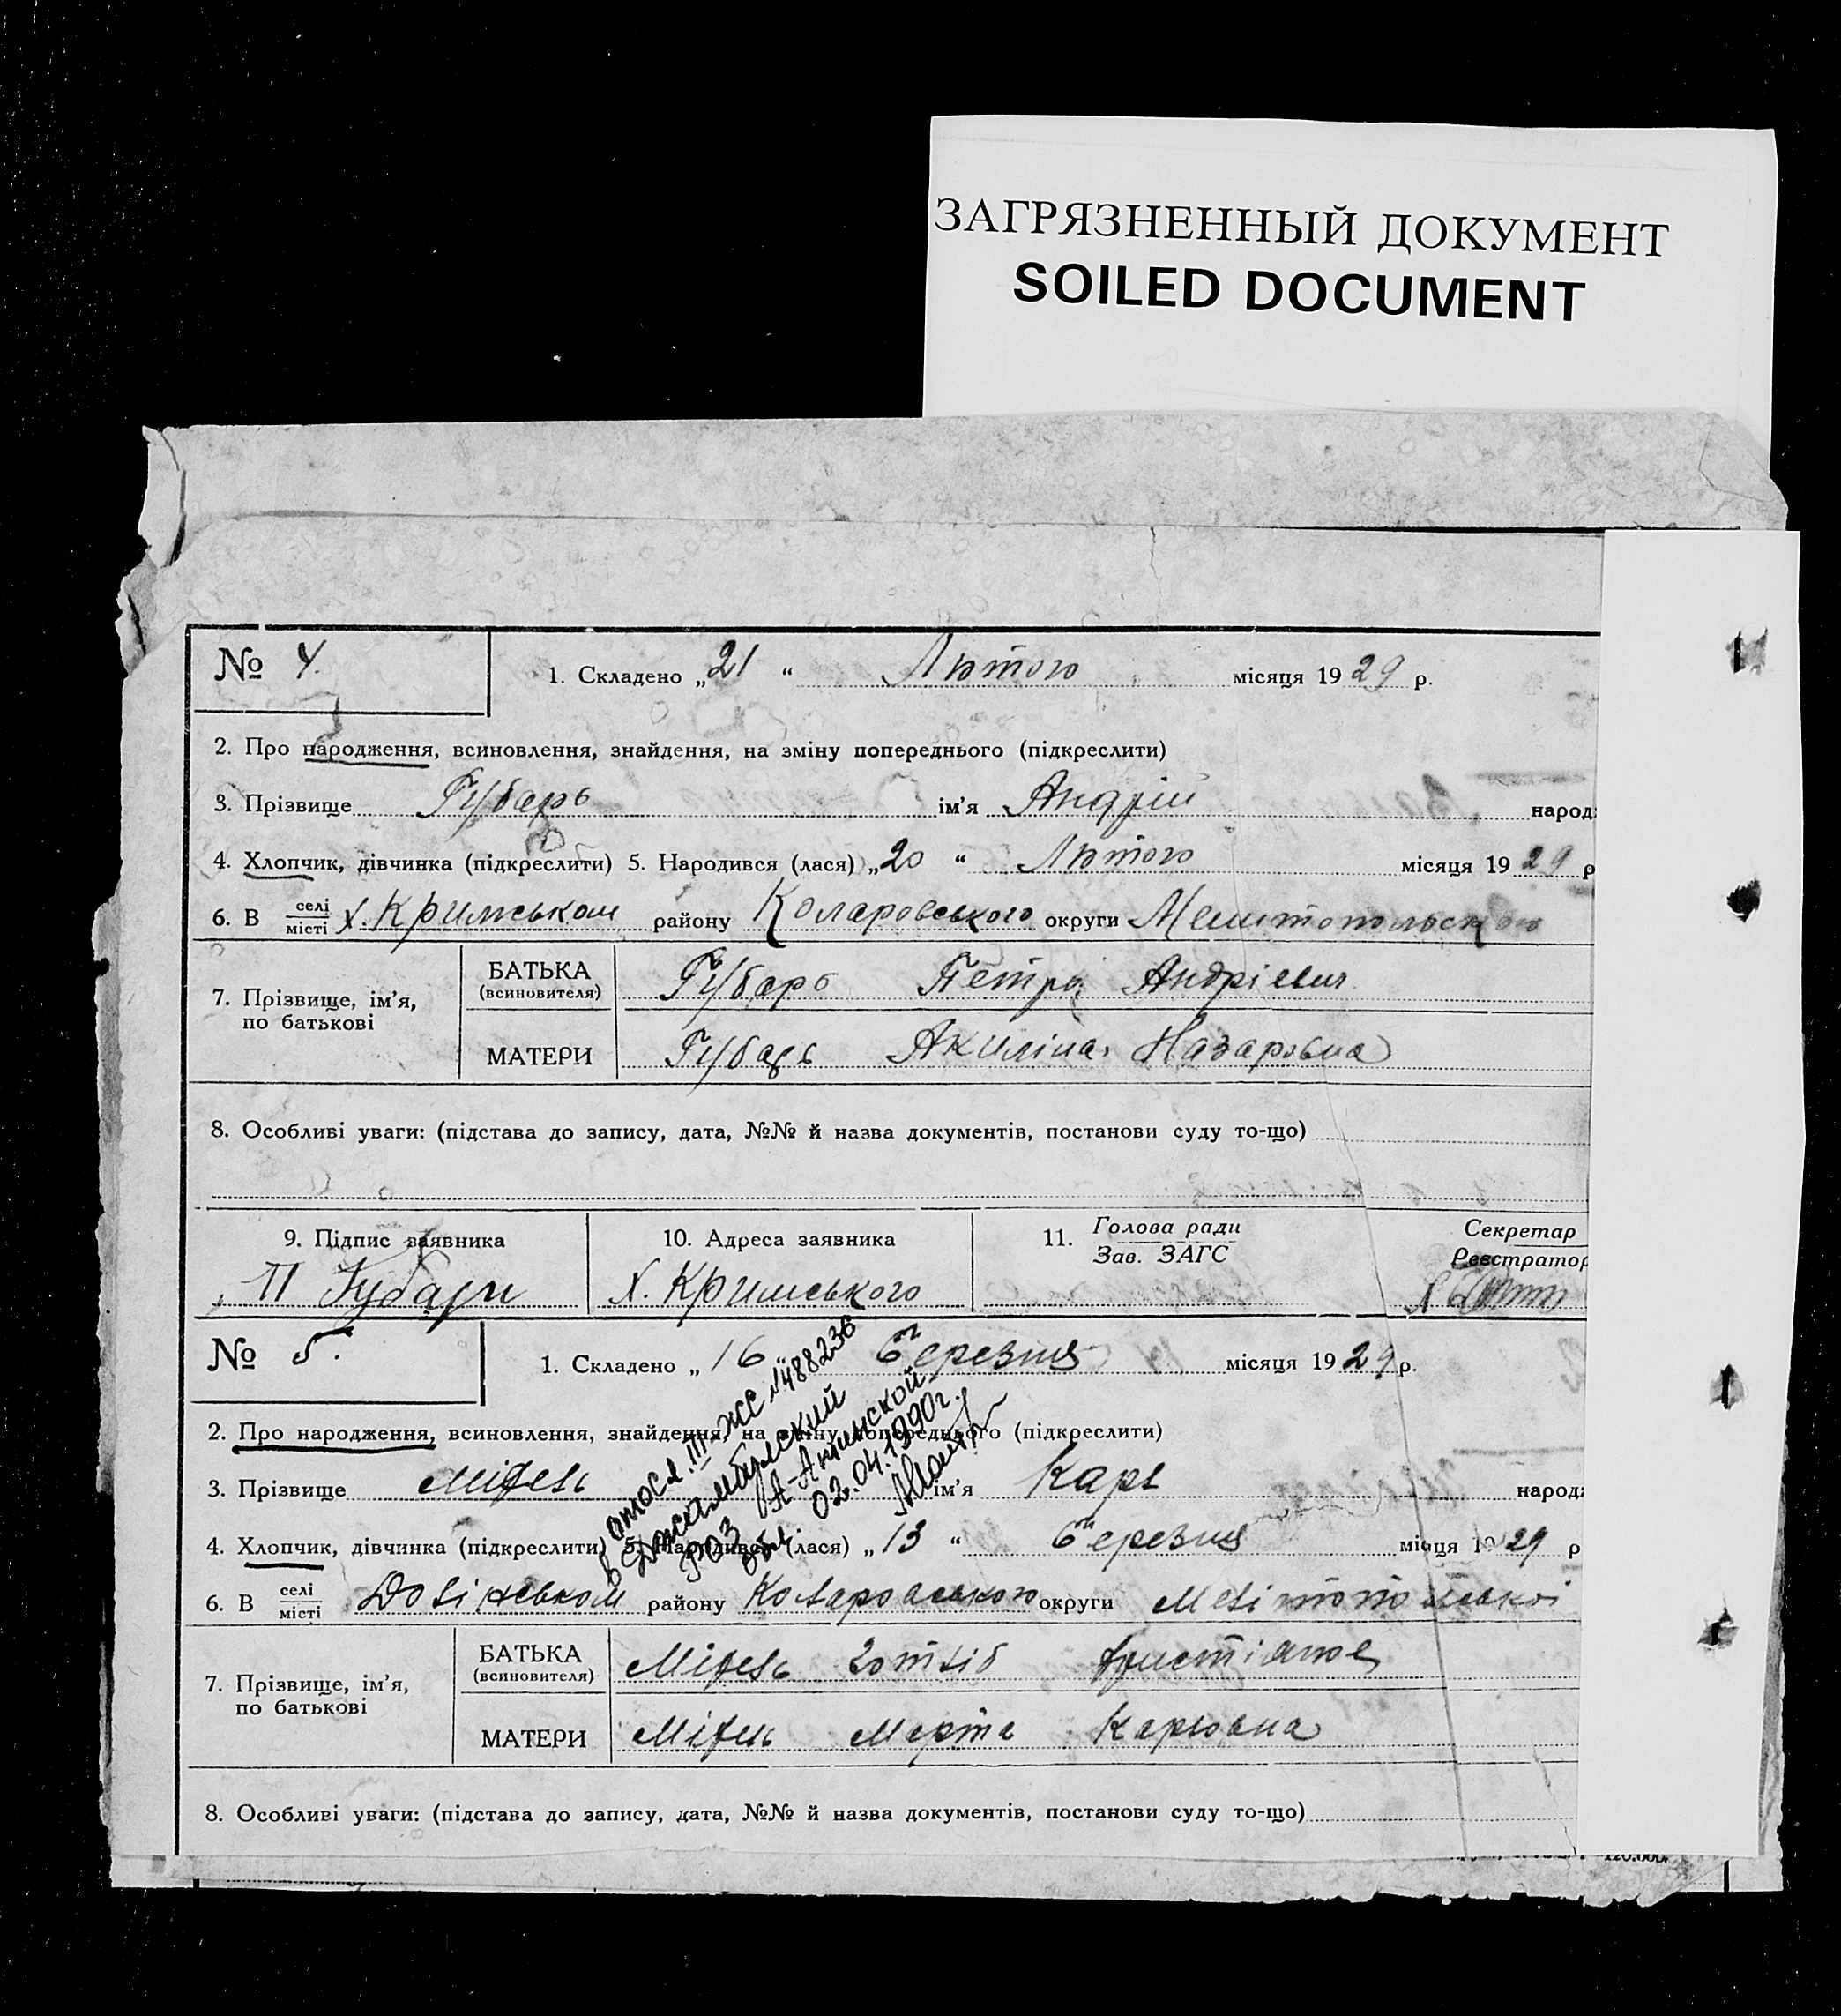 ЗАГРЯЗНЕННЫЙ ДОКУМЕНТ
SOILED DOCUMENT
№ 4. 1. Складено „21“ Лютого місяця 1929 р.
2. Про народження, всиновлення, знайдення, на зміну попереднього (підкреслити)
3. Прізвище Губарь ім’я Андрій народ
4. Хлопчик, дівчинка (підкреслити) 5. Народився (лася) „20“ Лютого місяця 1929 р
6. В селі місті х. Кримськом району Коларовського округи
7. Прізвище, ім’я, по батькові
БАТЬКА (всиновителя) Губарь Петро Андрієвич
МАТЕРИ Губарь Акиліна Назаровна
8. Особливі уваги: (підстава до запису, дата, №№ й назва документів, постанови суду то-що)
9. Підпис заявника 10. Адреса заявника 11. Голова ради Зав. ЗАГС Секретар Реєстратор
П Губарь Х. Кримського
№ 5. 1. Складено „16“ березня місяця 1929 р.
2. Про народження, всиновлення, знайдення, на зміну попереднього (підкреслити)
3. Прізвище ім’я Карл народ
4. Хлопчик, дівчинка (підкреслити) 5. Народився (лася) „13“ березня місяця 1929 р
в относ. III ЖС №488236
Джамбулский
РОЗ А-Атинской
обл. 02.04.1990г.
6. В селі місті району Коларовського округи
7. Прізвище, ім’я, по батькові
БАТЬКА (всиновителя) Готліб
МАТЕРИ Марта Карловна
8. Особливі уваги: (підстава до запису, дата, №№ й назва документів, постанови суду то-що)